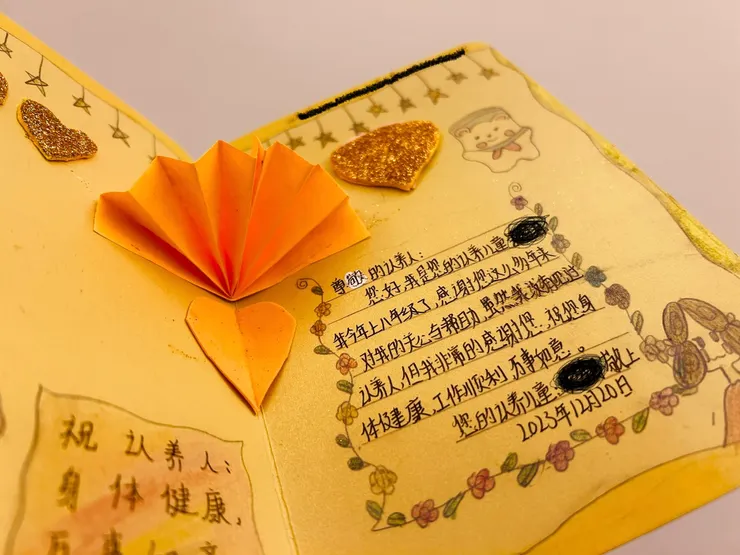 祝 认养人：
身体健康，
尊敬的认养人：
您好，我是您的认养儿童
我今年上八年级了，感谢您这么多年来
对我的关心与帮助，虽然我没有见过
认养人，但我非常的感谢您，祝您身
体健康，工作顺利，万事如意。
您的认养儿童： 敬上
2023年12月20日